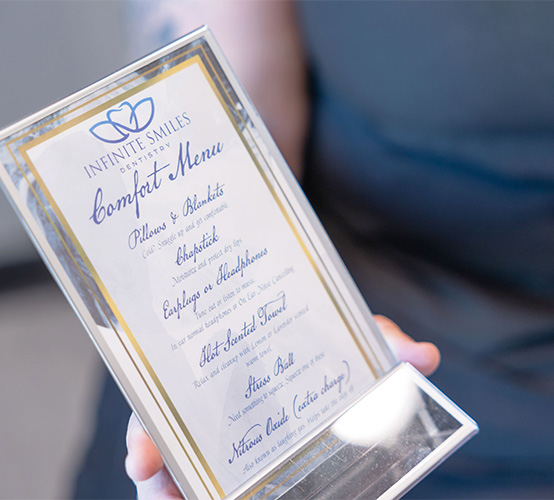 INFINITE SMILES
DENTISTRY
Comfort Menu
Pillows & Blankets
Cold? Snuggle up and get comfortable
Chapstick
Moisturize and protect dry lips
Earplugs or Headphones
Tune out or listen to music
In ear normal headphones or On Ear Noise Cancelling
Hot Scented Towel
Relax and cleanup with Lemon or Lavender scented
warm towel
Stress Ball
Need something to squeeze? Squeeze one of these
Nitrous Oxide (extra charge)
Also known as laughing gas. Helps take the edge off